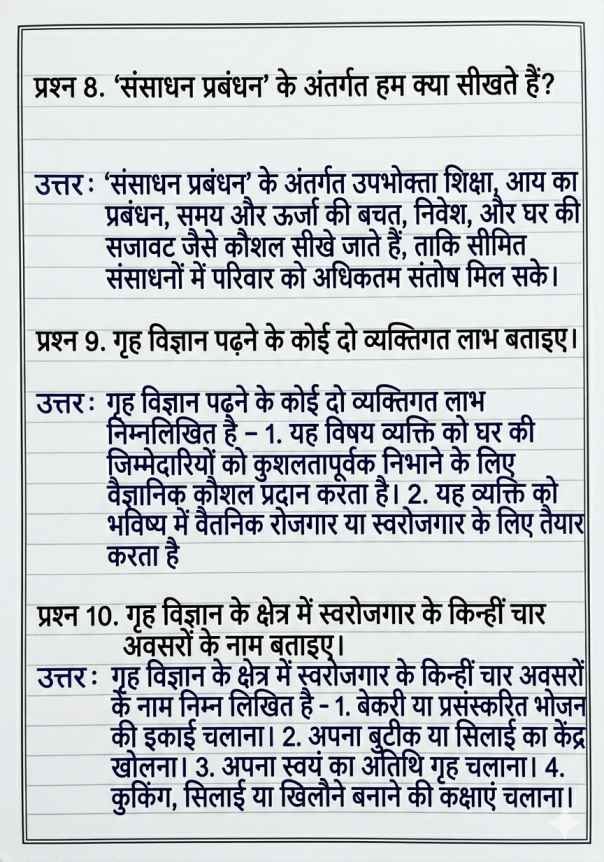 प्रश्न 8. ‘संसाधन प्रबंधन’ के अंतर्गत हम क्या सीखते हैं?
उत्तर : ‘संसाधन प्रबंधन’ के अंतर्गत उपभोक्ता शिक्षा, आय का
प्रबंधन, समय और ऊर्जा की बचत, निवेश, और घर की
सजावट जैसे कौशल सीखे जाते हैं, ताकि सीमित
संसाधनों में परिवार को अधिकतम संतोष मिल सके।
प्रश्न 9. गृह विज्ञान पढ़ने के कोई दो व्यक्तिगत लाभ बताइए।
उत्तर : गृह विज्ञान पढ़ने के कोई दो व्यक्तिगत लाभ
निम्नलिखित है – 1. यह विषय व्यक्ति को घर की
जिम्मेदारियों को कुशलतापूर्वक निभाने के लिए
वैज्ञानिक कौशल प्रदान करता है। 2. यह व्यक्ति को
भविष्य में वैतनिक रोजगार या स्वरोजगार के लिए तैयार
करता है
प्रश्न 10. गृह विज्ञान के क्षेत्र में स्वरोजगार के किन्हीं चार
अवसरों के नाम बताइए।
उत्तर : गृह विज्ञान के क्षेत्र में स्वरोजगार के किन्हीं चार अवसरों
के नाम निम्न लिखित है - 1. बेकरी या प्रसंस्करित भोजन
की इकाई चलाना। 2. अपना बुटीक या सिलाई का केंद्र
खोलना। 3. अपना स्वयं का अतिथि गृह चलाना। 4.
कुकिंग, सिलाई या खिलौने बनाने की कक्षाएं चलाना।